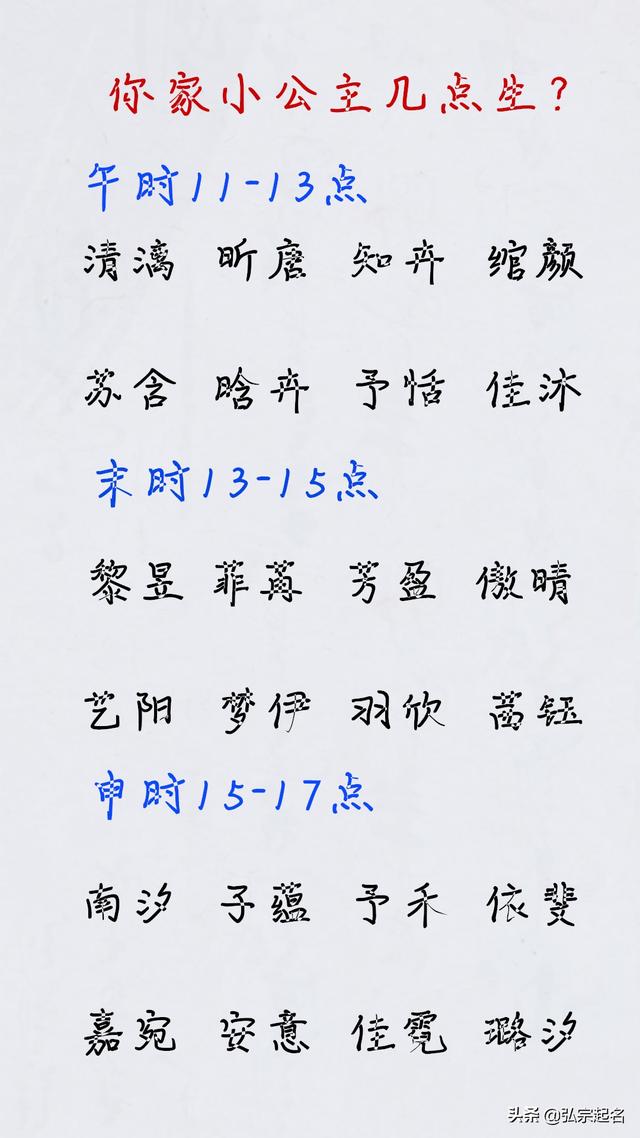 你家小公主几点生？
午时11-13点
清漓 昕唐 知卉 绾颜
苏含 晗卉 予恬 佳沐
末时13-15点
黎昱 菲苒 芳盈 傲晴
艺阳 梦伊 羽欣 茜钰
申时15-17点
南汐 子蕴 予禾 依斐
嘉宛 安意 佳霓 璐汐
头条 @弘宗起名